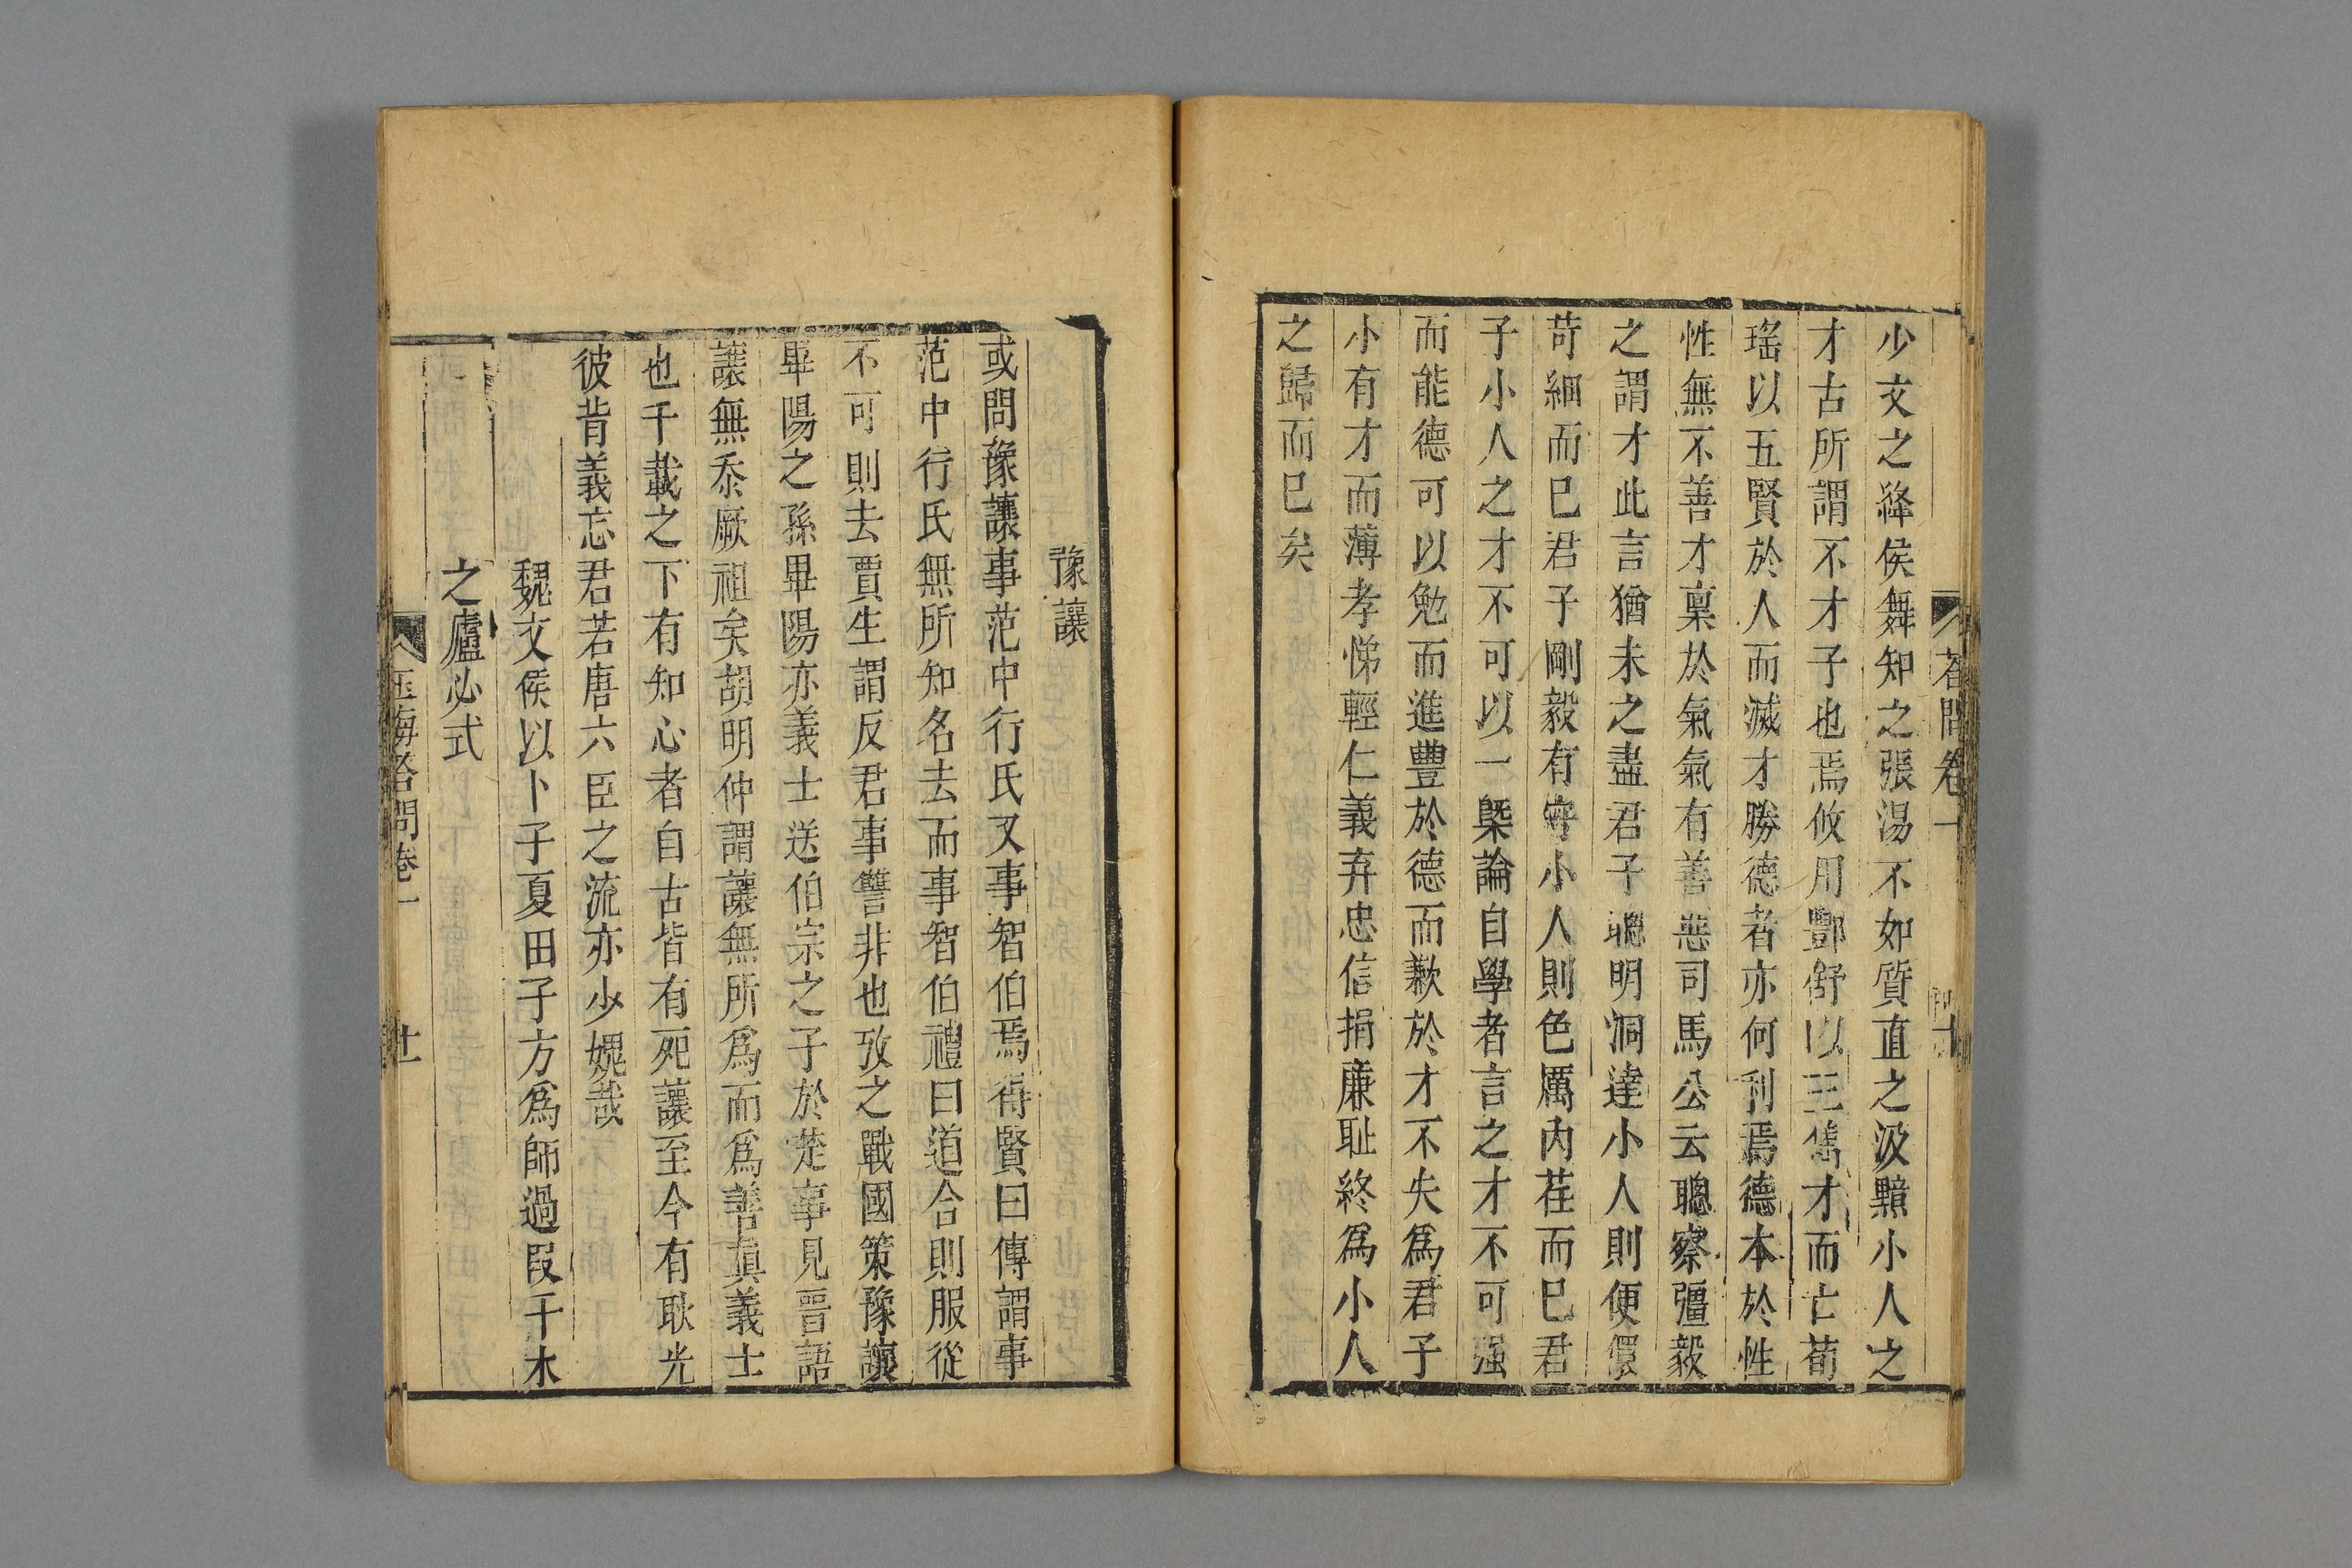 答問卷一 十
少文之絳侯舞知之張湯不如質直之汲黯小人之
才古所謂不才子也焉攸用酆舒以三雋才而亡荀
瑤以五賢於人而滅才勝德者亦何利焉德本於性
性無不善才稟於氣氣有善惡司馬公云聰察彊毅
之謂才此言猶未之盡君子聰明洞達小人則便儇
苛細而已君子剛毅有守小人則色厲內荏而已君
子小人之才不可以一槩論自學者言之才不可强
而能德可以勉而進豐於德而歉於才不失爲君子
小有才而薄孝悌輕仁義弃忠信捐廉耻終爲小人
之歸而已矣
豫讓
或問豫讓事范中行氏又事智伯焉得賢曰傳謂事
范中行氏無所知名去而事智伯禮曰道合則服從
不可則去賈生謂反君事讐非也攷之戰國策豫讓
畢陽之孫畢陽亦義士送伯宗之子於楚事見晉語
讓無忝厥祖矣胡明仲謂讓無所爲而爲善眞義士
也千載之下有知心者自古皆有死讓至今有耿光
彼背義忘君若唐六臣之流亦少媿哉
魏文侯以卜子夏田子方爲師過段干木
之廬必式
玉海答問卷一 十一